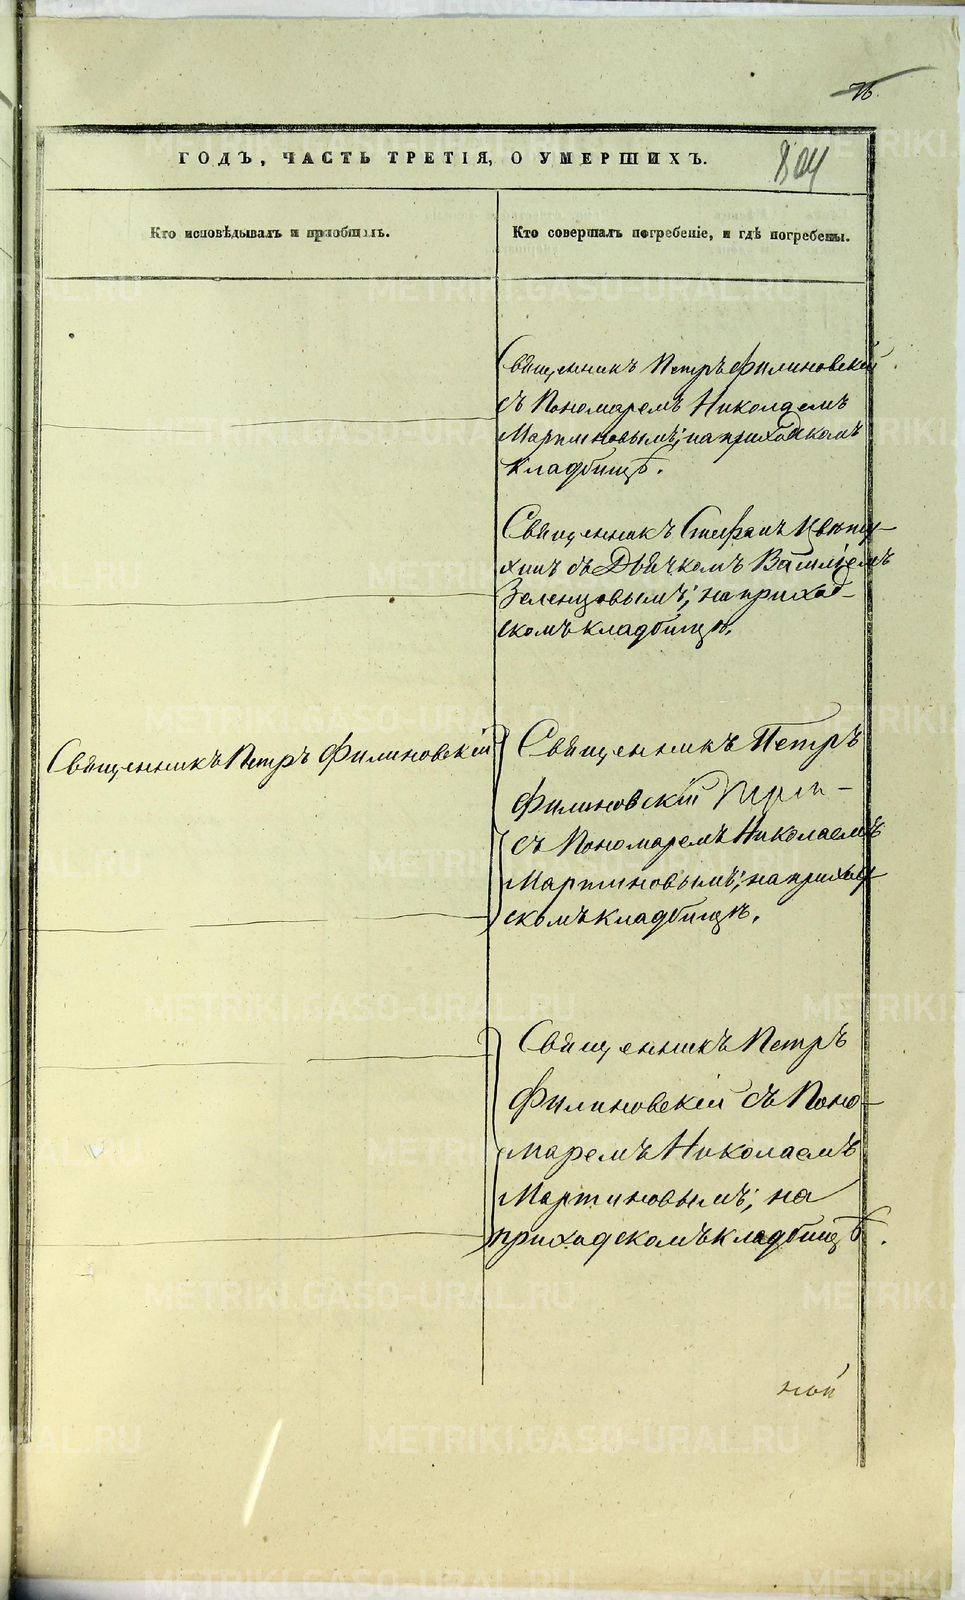 76.
ГОДЪ, ЧАСТЬ ТРЕТІЯ, О УМЕРШИХЪ.
804
Кто исповѣдывалъ и пріобщалъ.
Кто совершалъ погребеніе, и гдѣ погребены.
Священникъ Петръ Филиновскій
съ Пономаремъ Николаемъ
Мартиновымъ; на приходскомъ
кладбищѣ.
Священникъ Стефанъ
съ Дьячкомъ Василіемъ
Зеленцовымъ; на приход-
скомъ кладбищѣ.
Священникъ Петръ Филиновскій
Священникъ Петръ
Филиновскій
съ Пономаремъ Николаемъ
Мартиновымъ; на приход
скомъ кладбищѣ.
Священникъ Петръ
Филиновскій съ Поно-
маремъ Николаемъ
Мартиновымъ; на
приходскомъ кладбищѣ.
ной
METRIKI.GASO-URAL.RU